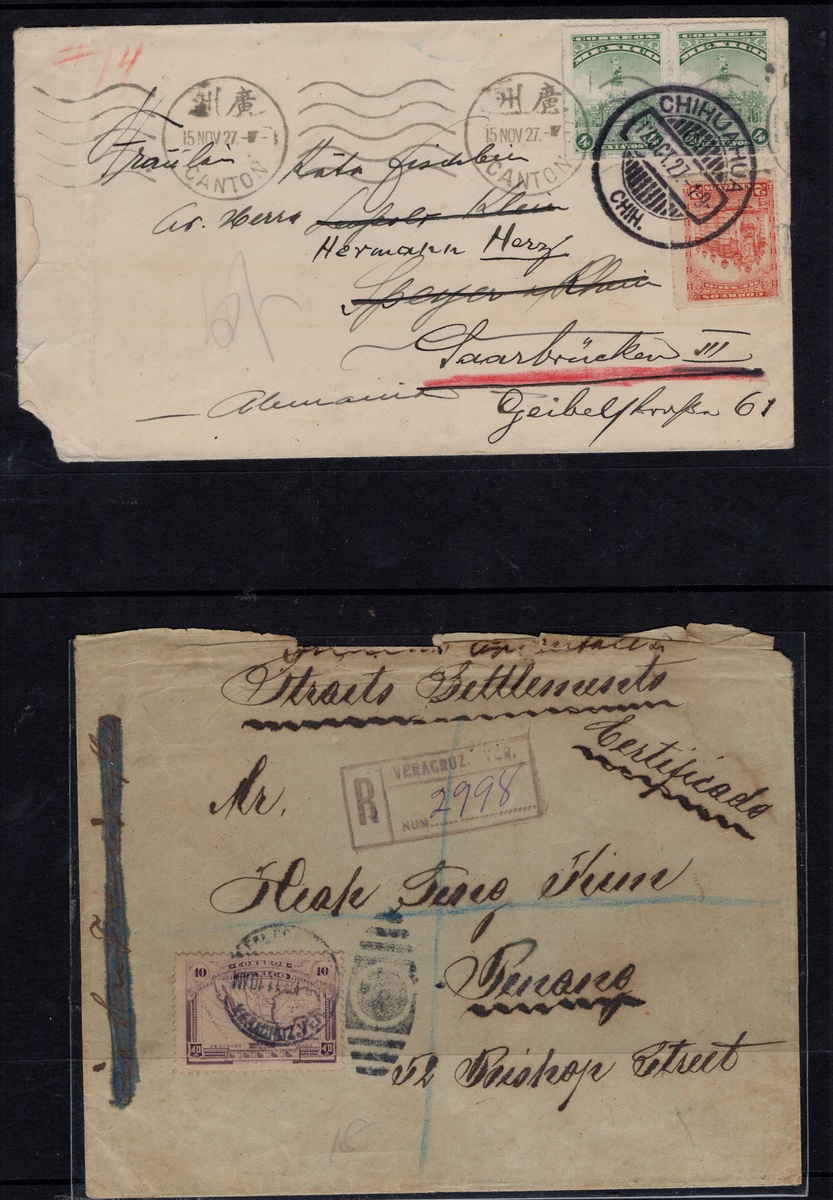 #14
廣州
15 NOV 27.-
CANTON
廣州
15 NOV 27.-
CANTON
CORREOS
MEXICO
4
CORREOS
MEXICO
4
CHIHUAHUA
17 OCT. 27.
CHIH.
CORREOS
MEXICO
Fräulein Käte Fischbein
Hermann Herz
Speyer a Rhein
Saarbrücken III
Alemania
Geibelstraße 61
Straits Settlements
Certificado
R
VERACRUZ. VER.
NUM. 2998
Mr.
Heap Teng Kim
Penang
52 Bishop Street
10
10
CENTAVOS
18